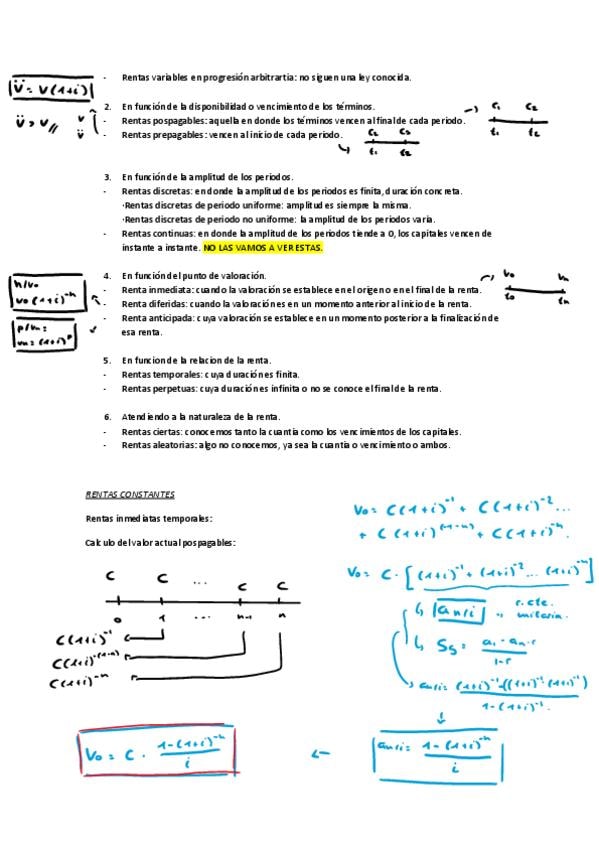 - Rentas variables en progresión arbitrartia: no siguen una ley conocida.
V̈ = V(1+i)
2. En función de la disponibilidad o vencimiento de los términos.
- Rentas pospagables: aquella en donde los términos vencen al final de cada periodo.
- Rentas prepagables: vencen al inicio de cada periodo.
V̈ > V //
V
V̈
C1 C2
t1 t2
C2 C3
t1 t2
3. En función de la amplitud de los periodos.
- Rentas discretas: en donde la amplitud de los periodos es finita, duración concreta.
·Rentas discretas de periodo uniforme: amplitud es siempre la misma.
·Rentas discretas de periodo no uniforme: la amplitud de los periodos varía.
- Rentas continuas: en donde la amplitud de los periodos tiende a 0, los capitales vencen de
instante a instante. NO LAS VAMOS A VER ESTAS.
4. En función del punto de valoración.
- Renta inmediata: cuando la valoración se establece en el origen o en el final de la renta.
- Renta diferidas: cuando la valoración es en un momento anterior al inicio de la renta.
- Renta anticipada: cuya valoración se establece en un momento posterior a la finalización de
esa renta.
n/V0
V0 (1+i)^-n
V0 Vn
t0 tn
5. En funcion de la relacion de la renta.
- Rentas temporales: cuya duración es finita.
- Rentas perpetuas: cuya duración es infinita o no se conoce el final de la renta.
6. Atendiendo a la naturaleza de la renta.
- Rentas ciertas: conocemos tanto la cuantía como los vencimientos de los capitales.
- Rentas aleatorias: algo no conocemos, ya sea la cuantía o vencimiento o ambos.
RENTAS CONSTANTES
Rentas inmediatas temporales:
Calculo del valor actual pospagables:
V0 = C(1+i)^-1 + C(1+i)^-2 ...
+ C(1+i)^(1-n) + C(1+i)^-n.
V0 = C · [(1+i)^-1 + (1+i)^-2 ... (1+i)^-n]
C C ... C C
0 1 ... n-1 n
C(1+i)^-1
C(1+i)^-(1-n)
C(1+i)^-n
an¬i r. cte. unitaria.
S = a1 - an·r / 1-r
an¬i = (1+i)^-1 - ((1+i)^-n · (1+i)^-1) / 1-(1+i)^-1
an¬i = 1-(1+i)^-n / i
V0 = C · 1-(1+i)^-n / i